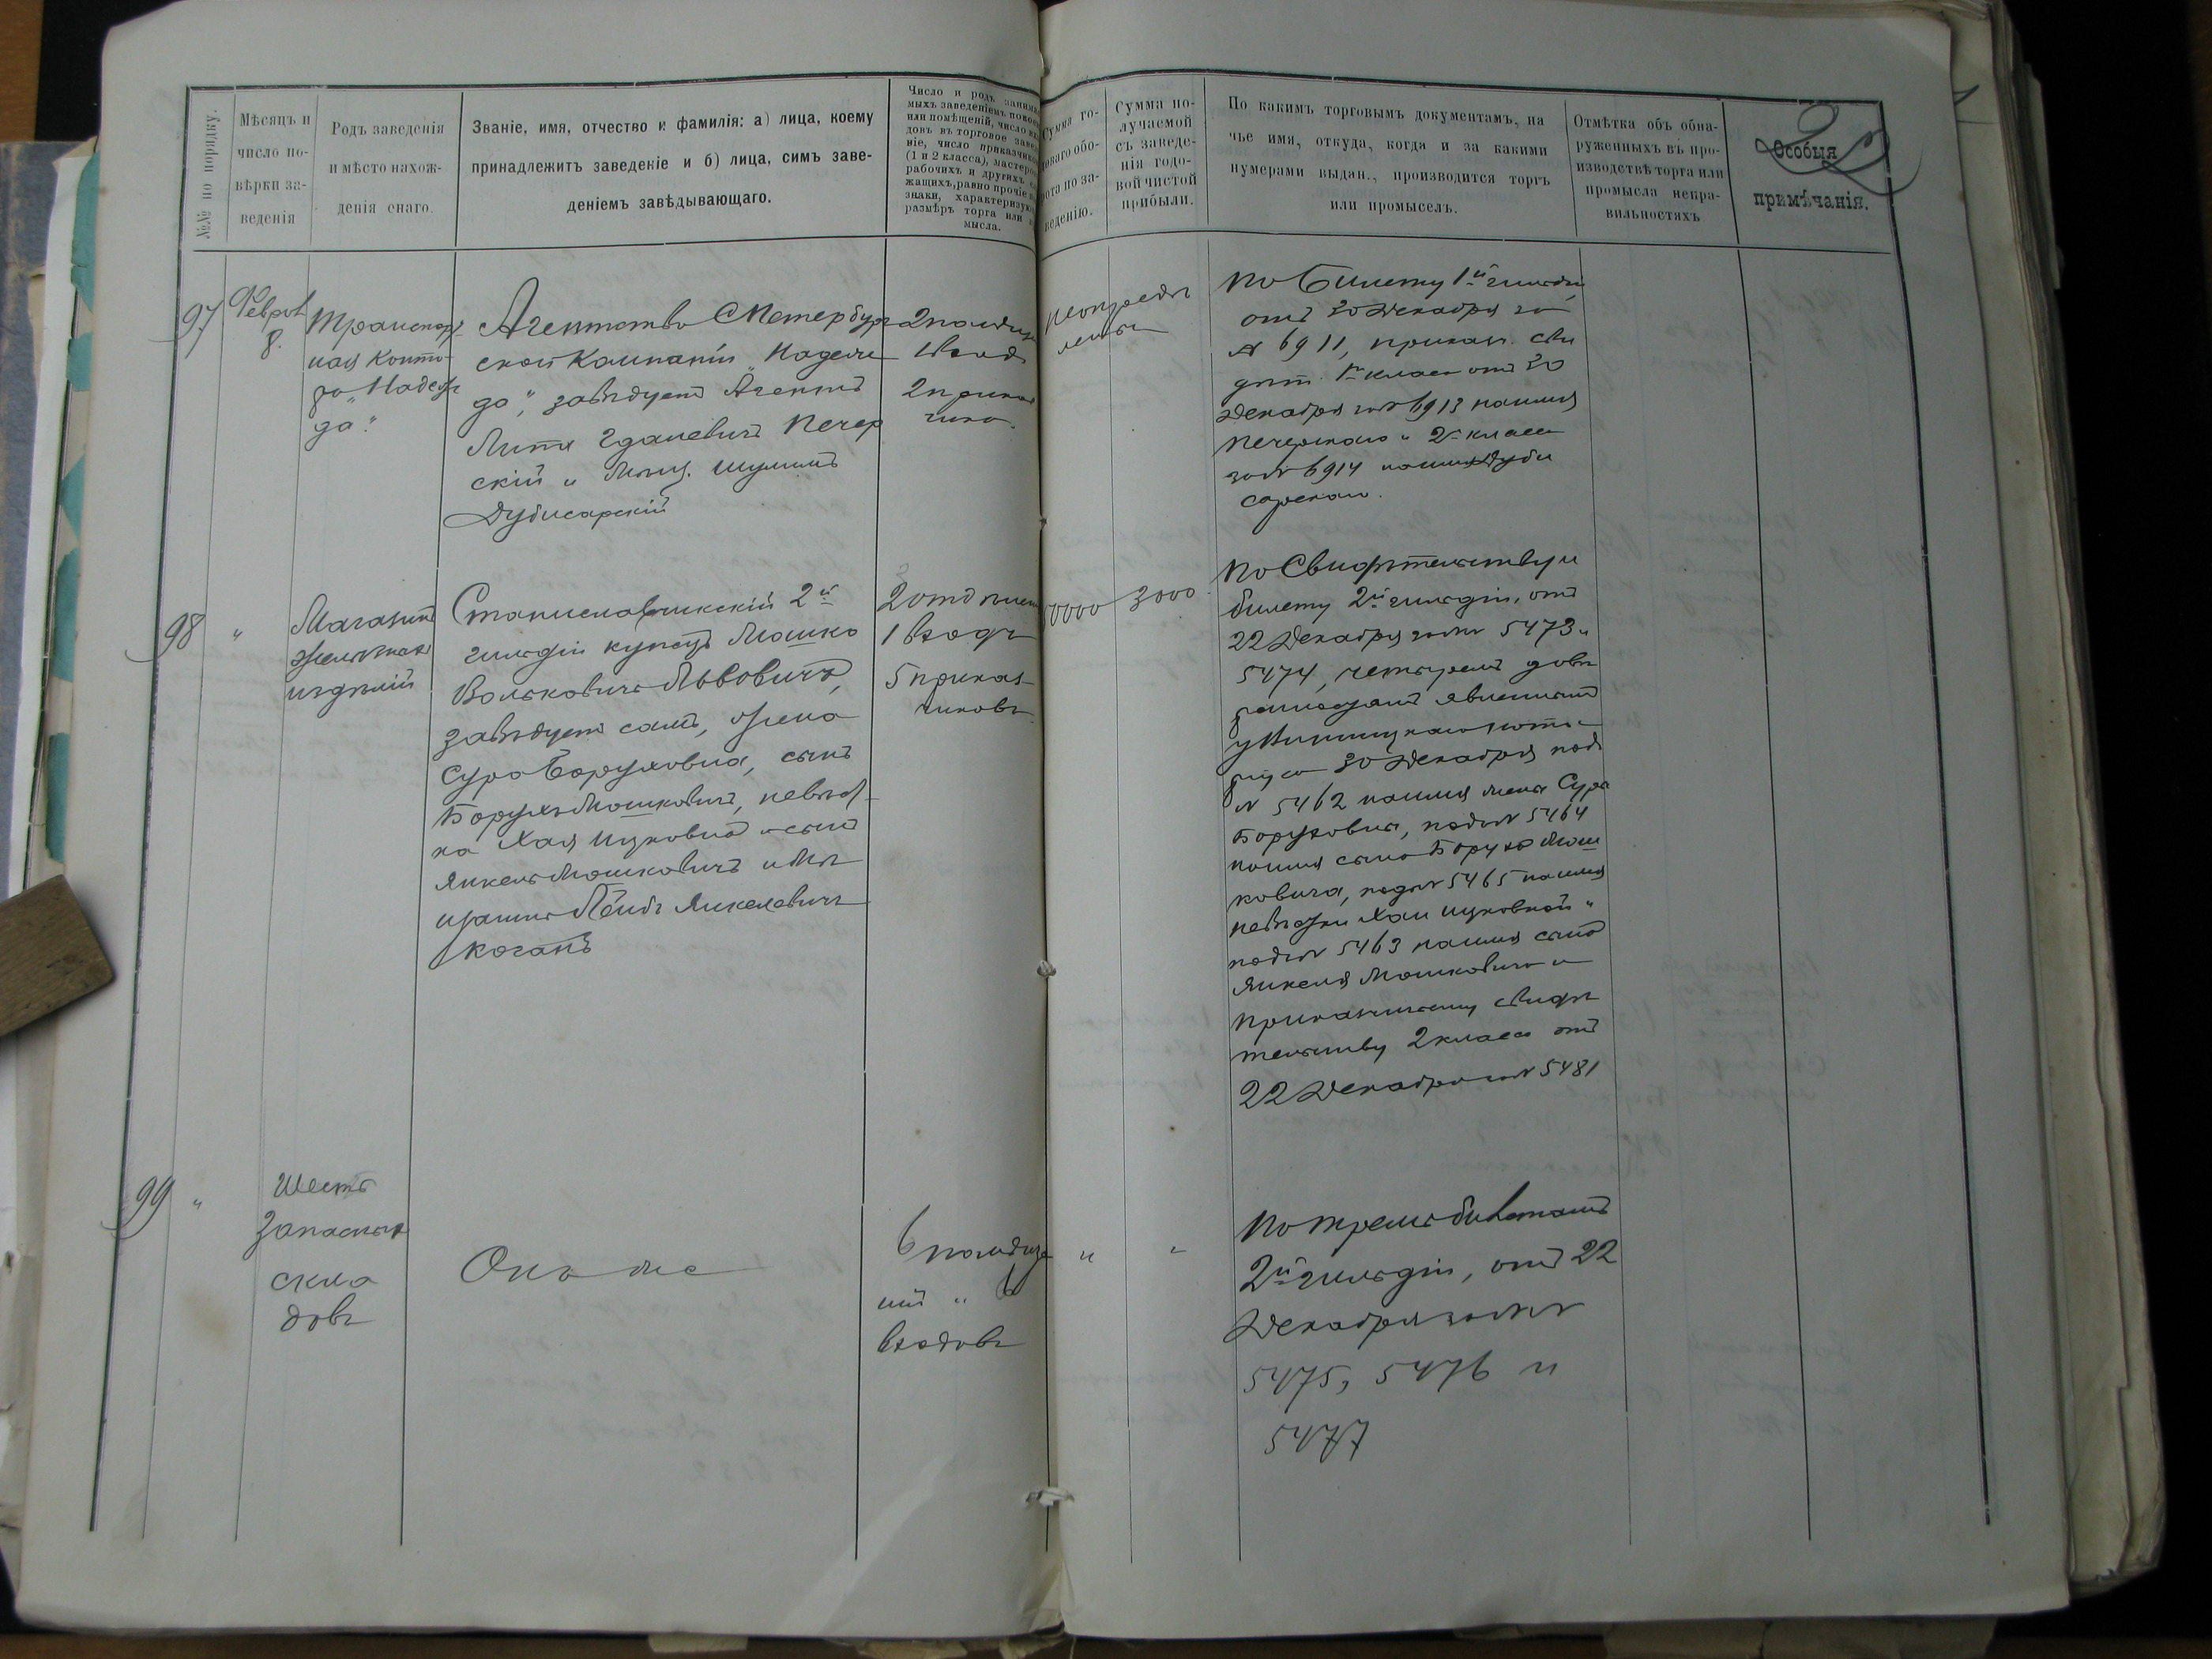 №№ по порядку.
Мѣсяцъ и
число по-
вѣрки за-
веденія
Родъ заведенія
и мѣсто нахож-
денія онаго.
Званіе, имя, отчество и фамилія: а) лица, коему
принадлежитъ заведеніе и б) лица, симъ заве-
деніемъ завѣдывающаго.
Число и родъ
мыхъ заведеніемъ
или помѣщеній, число
довъ въ торговое
ніе, число
(1 и 2 класса),
рабочихъ и другихъ
жащихъ, равно прочіе
знаки,
размѣръ торга или
мысла.
Сумма го-
доваго обо-
рота по за-
веденію.
Сумма по-
лучаемой
съ заведе-
нія годо-
вой чистой
прибыли.
По какимъ торговымъ документамъ, на
чье имя, откуда, когда и за какими
нумерами выдан., производится торгъ
или промыселъ.
Отмѣтка объ обна-
руженныхъ въ про-
изводствѣ торга или
промысла непра-
вильностяхъ
Особыя
примѣчанія.
97
8.
Транспорт
ная конто-
ра „Надеж
да“
Агентство СПетербург
ской Компаніи „Надеж
да“, завѣдуетъ Агентъ
Печер
скій и Шулимъ
Дубисарскій
1 входъ
2 приказ
чика.
по Билету 1й гильдіи
отъ 30 Декабря за
№ 6911, приказ. сви
дѣт. 1го класса отъ 30
Декабря за № 6913 на имя
Печерскаго и 2го класса
за № 6914 на имя Дуби
сарскаго.
98
"
Магазинъ
желѣзныхъ
издѣлій
Станиславчикскій 2й
гильдіи купецъ Мошко
Вольковичъ Львовичъ,
завѣдуетъ самъ, жена
Сура Боруховна, сынъ
Борухъ Мошковичъ, невѣст-
ка Хая Ицковна и сынъ
Янкель Мошковичъ и Мѣ
щанинъ Лейбъ Янкелевичъ
Коганъ
1 входъ
5 приказ-
чиковъ
3000
по Свидѣтельству и
билету 2й гильдіи, отъ
22 Декабря за №№ 5473 и
5474, четыремъ довѣ
30 Декабря подъ
№ 5462 на имя жены Сура
Боруховны, подъ № 5464
на имя сына Боруха Мош
ковича, подъ № 5465 на имя
невѣстки Хаи Ицковной и
подъ № 5463 на имя сына
Янкеля Мошковича и
приказчичьему свидѣ
тельству 2 класса отъ
22 Декабря за № 5481
99
"
Шесть
запасныхъ
скла
довъ
Онъ же
6 помѣще
ній и 6
входовъ
"
"
по тремъ билетамъ
2й гильдіи, отъ 22
Декабря за №№
5475, 5476 и
5477